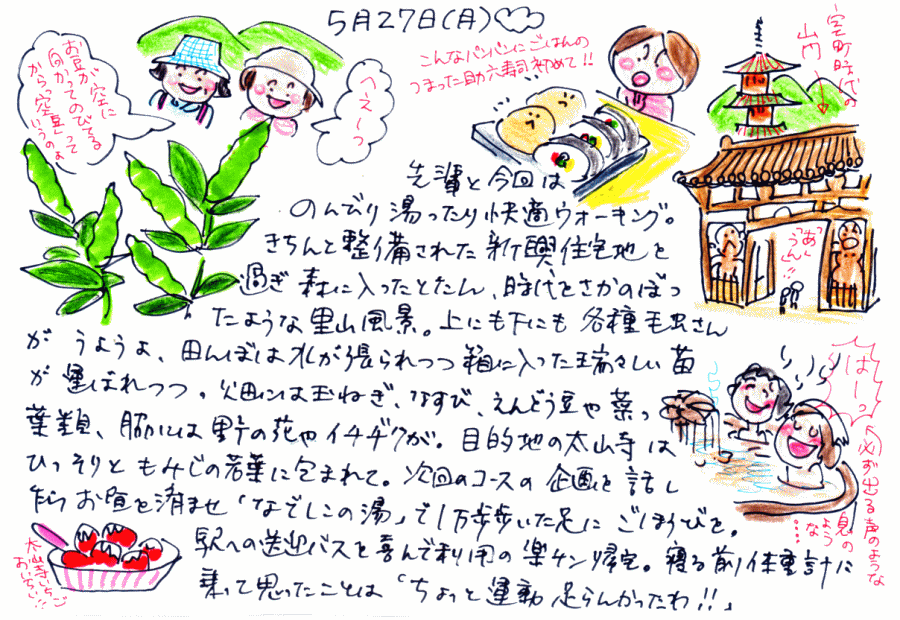 5月27日(月)
お豆が空に
向かってのびてる
からって空豆って
いうのよ
へえ～っ
こんなパンパンにごはんの
つまった助六寿司初めて!!
室町時代の
山門
「あ」
「うん」!!
先輩と今回は
のんびり湯ったり快適ウォーキング。
きちんと整備された新興住宅地を
過ぎ森に入ったとたん、時代をさかのぼっ
たような里山風景。上にも下にも各種毛虫さん
がうようよ、田んぼは水が張られつつ箱に入った瑞々しい苗
が運ばれつつ。畑には玉ねぎ、なすび、えんどう豆や菜っ
葉類、脇には野の花やイチヂクが。目的地の太山寺は
ひっそりともみじの若葉に包まれて。次回のコースの企画を話し
ながらお昼を済ませ「なでしこの湯」で1万歩歩いた足にごほうびを。
駅への送迎バスを喜んで利用の楽チン帰宅。寝る前体重計に
乗って思ったことは「ちょっと運動足らんかったわ!!」
はーっ
必ず出る声のような
息のような……
太山寺いちご
おいちい!!